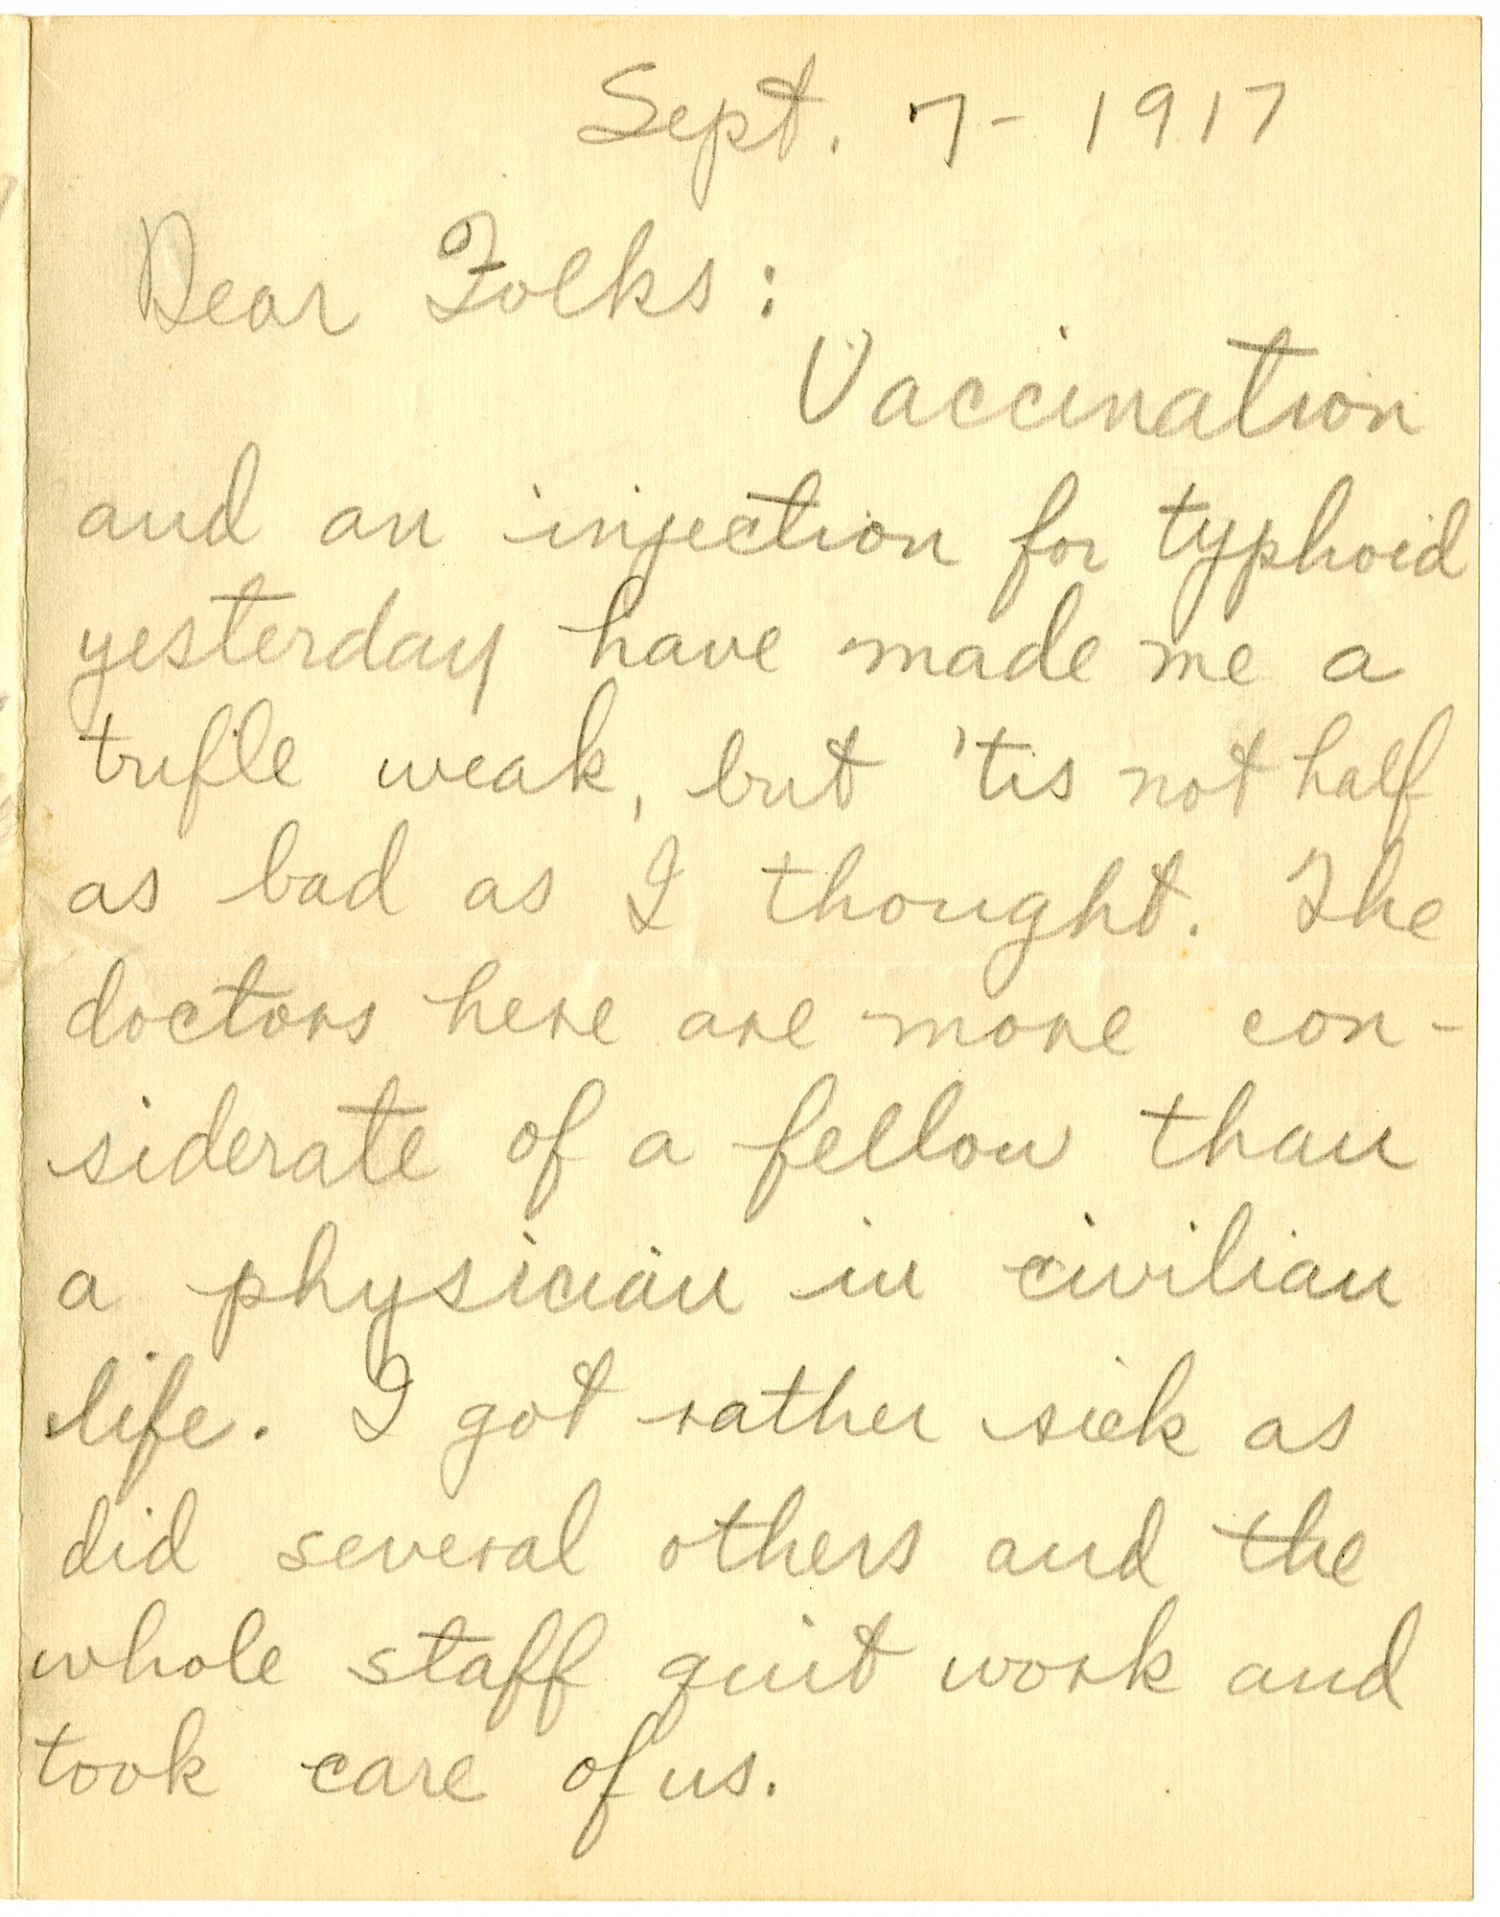 Sept. 7 - 1917
Dear Folks :
Vaccination
and an injection for typhoid
yesterday have made me a
trifle weak, but 'tis not half
as bad as I thought. The
doctors here are more con-
siderate of a fellow than
a physician in civilian
life. I got rather sick as
did several others and the
whole staff quit work and
took care of us.